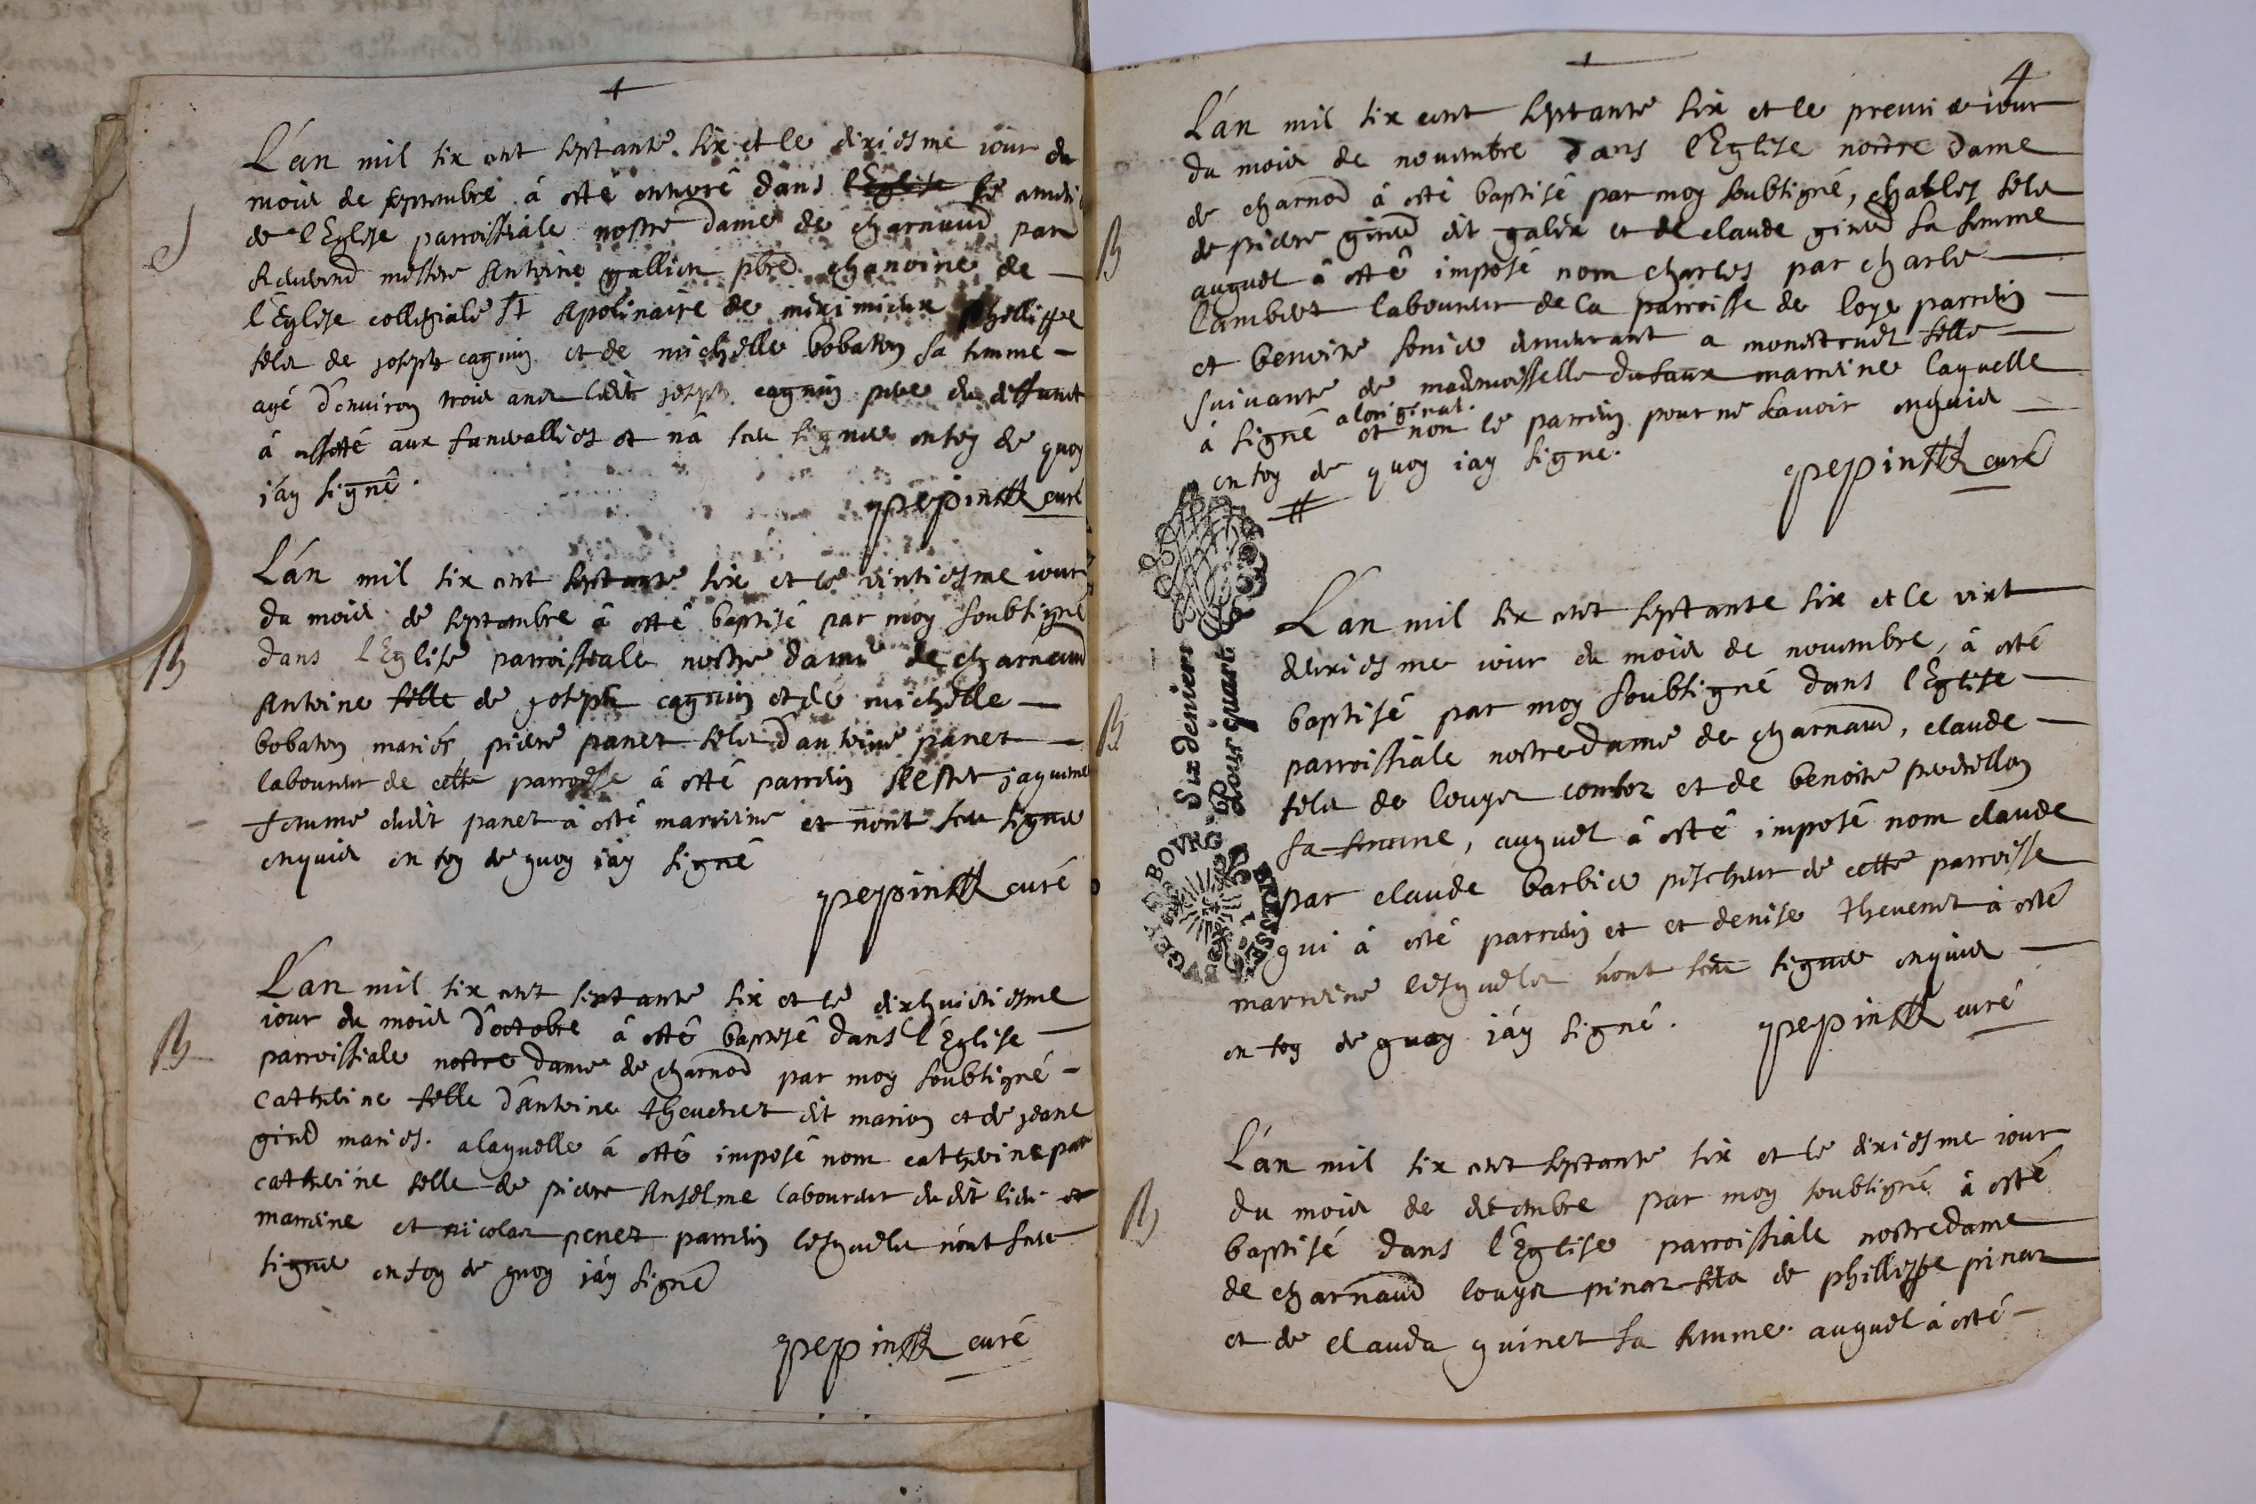 L'an mil six cent septante six et le dixiesme iour du
mois de septembre à esté enterré dans l'Eglise le
de l'Eglise parroissiale nostre dame de charnaud par
Reverend messire Antoine gallien pbre chanoine de
l'Eglise collegiale St Apolinaire de meximieux phillippe
fils de joseph cagnin et de michelle bobaton sa femme
agé d'environ trois ans ledit joseph cagnin pere du deffunct
à assisté aux funerallies et n'à sceu signer en foy de quoy
j'ay signé.
pepin curé
S
L'an mil six cent septante six et le vintiesme iour
du mois de septembre à esté baptisé par moy soubsigné
dans l'Eglise parroissiale nostre dame de charnaud
Antoine fille de joseph cagnin et de michelle
bobaton mariés, pierre panet fils d'antoine panet
laboureur de cette parroisse à esté parrain et jaqueme
femme dudit panet à esté marraine et n'ont sceu signer
enquis en foy de quoy i'ay signé
pepin curé
B
L'an mil six cent septante six et le dixhuictiesme
iour du mois d'octobre à esté baptisé dans l'Eglise
parroissiale nostre dame de charnod par moy soubsigné
catherine fille d'Antoine thevenet dit marion et de jeane
gired mariés. a laquelle à esté imposé nom catherine par
catherine fille de pierre Anselme laboureur dudit lieu
marraine et nicolas penet parrain lesquels n'ont sceu
signer en foy de quoy j'ay signé
pepin curé
B
4
L'an mil six cent septante six et le premier iour
du mois de novembre dans l'Eglise nostre dame
de charnod à esté baptisé par moy soubsigné, charles fils
de pierre gired dit galix et de claude gired sa femme
auquel à esté imposé nom charles par charle
lambert laboureur de la parroisse de loye parrain
et benoite demeurant a fille
suivante de madmoisselle dufaux marraine laquelle
à signé a loriginal. et non le parrain pour ne scavoir enquis
en foy de quoy i'ay signé.
pepin curé
B
Six deniers
Pour quart
BOVRG BRESSE BVGEY
L'an mil six cent septante six et le vint
deuxiesme iour du mois de novembre, à esté
baptisé par moy soubsigné dans l'Eglise
parroissiale nostre dame de charnaud, claude
fils de louys combz et de benoite perdrillon
sa femme, auquel à esté imposé nom claude
par claude barbier pescheur de cette parroisse
qui à esté parrain et et denise thevenet à esté
marraine lesquels n'ont sceu signer enquis
en foy de quoy j'ay signé.
pepin curé
B
L'an mil six cent septante six et le dixiesme iour
du mois de decembre par moy soubsigné à esté
baptisé dans l'Eglise parroissiale nostre dame
de charnaud louys pinaz fils de phillippe pinaz
et de clauda guinet sa femme. auquel à esté
B